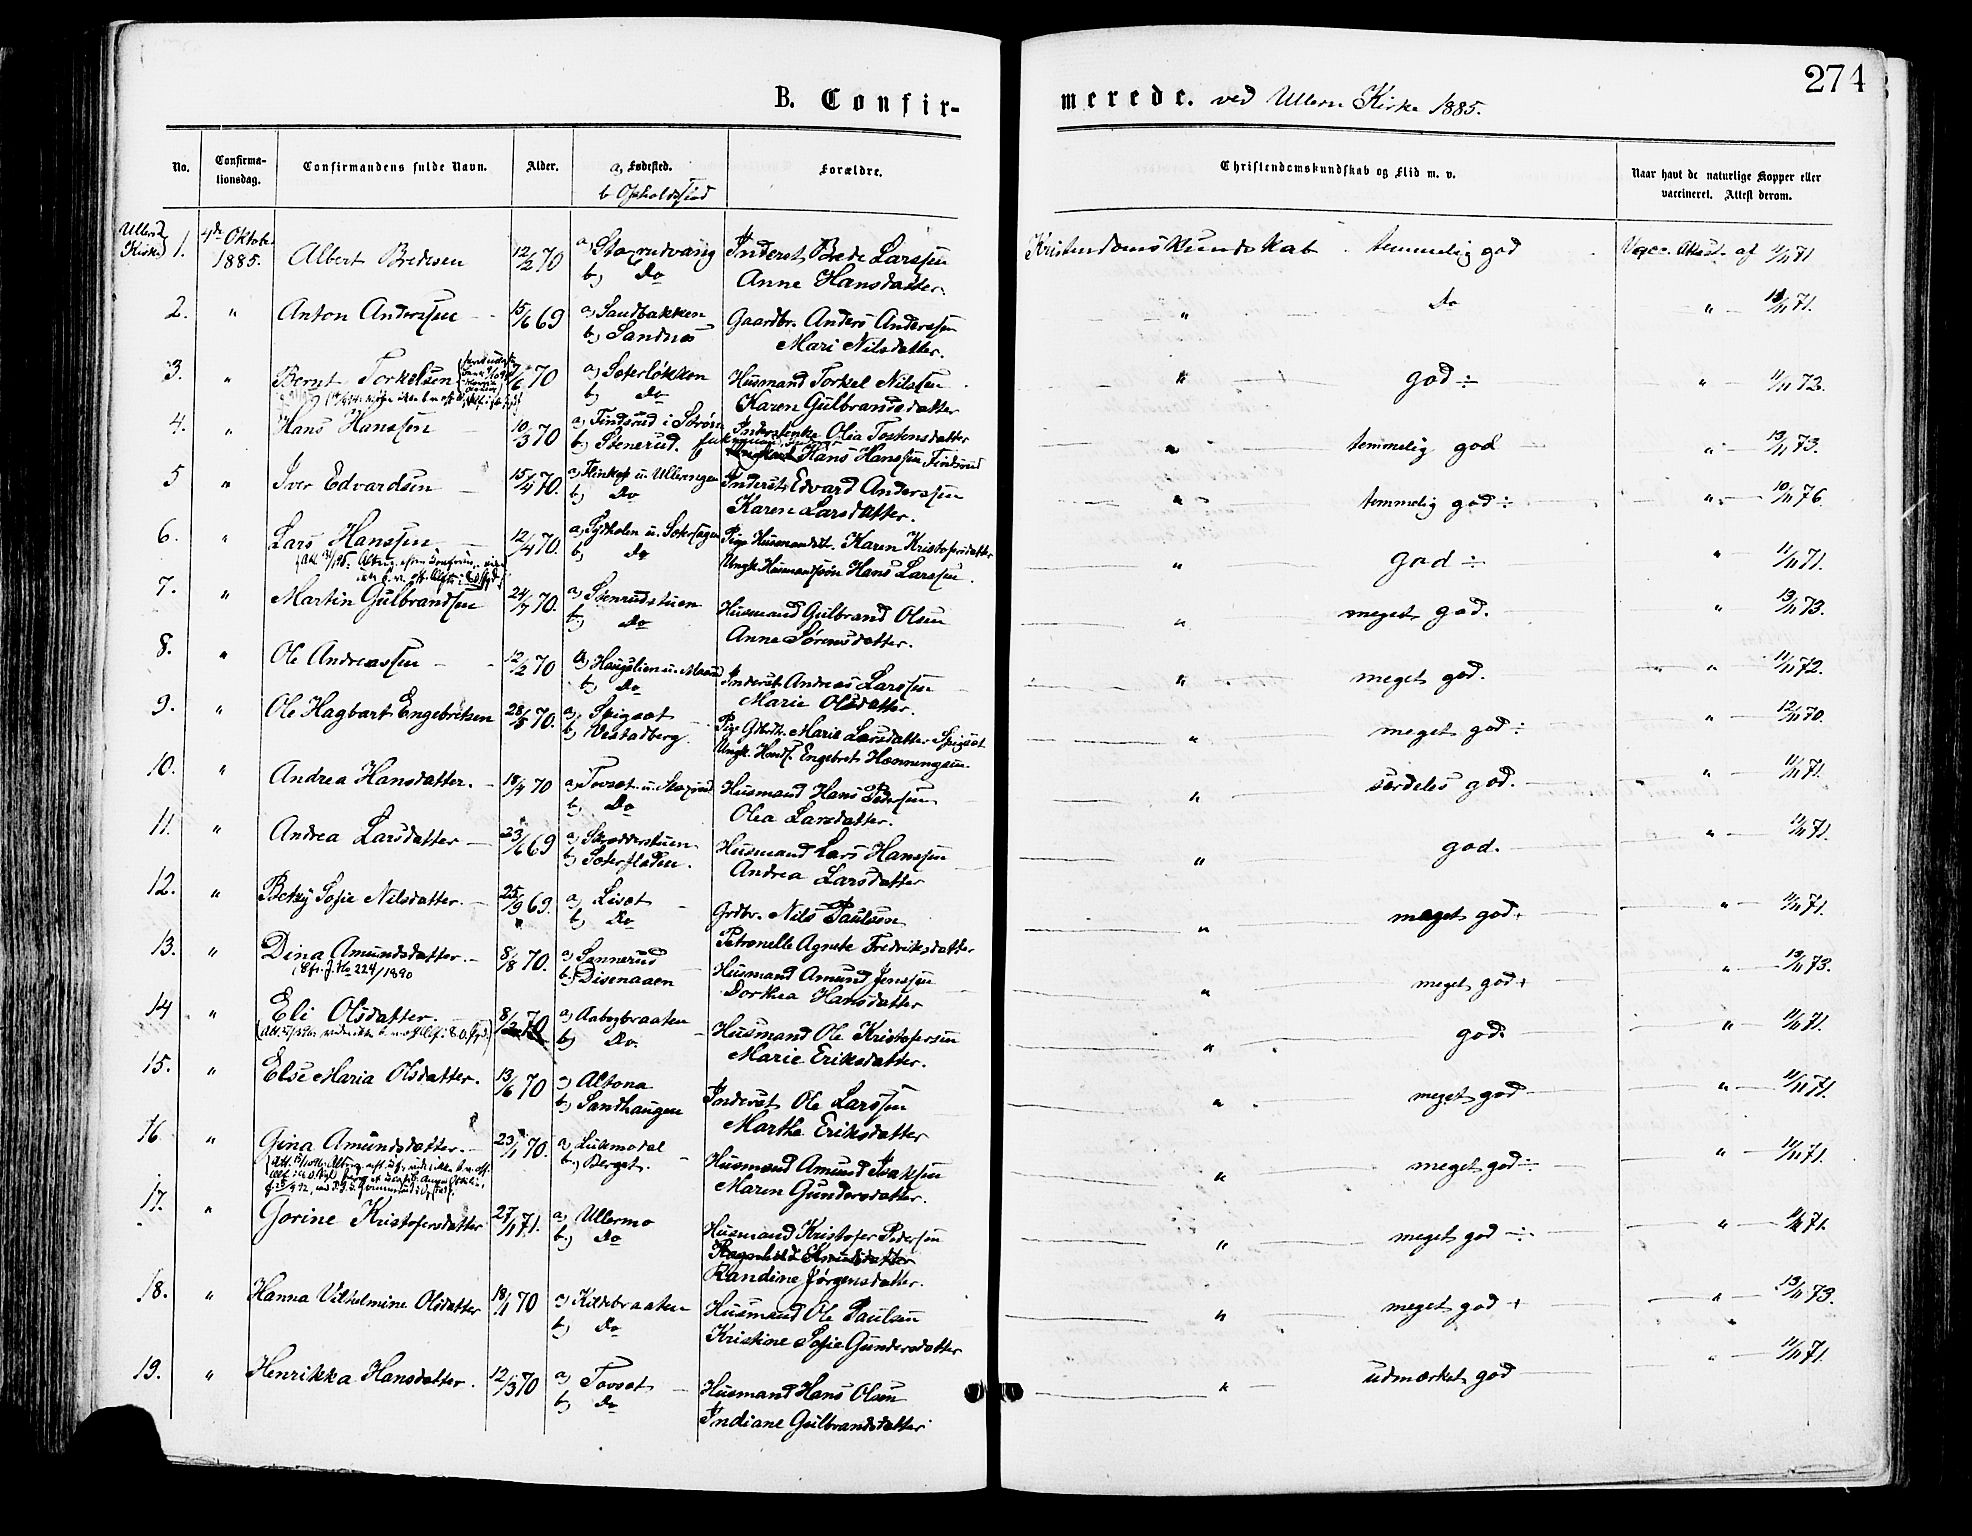 274
B. Confir-
merede. ved Ullern Kirke 1885.
No.
Confirma-
tionsdag.
Confirmandens fulde Navn.
Alder.
a) Fødested.
b Opholdssted
Forældre.
Christendomskundskab og Flid m. v.
Naar havt de naturlige Kopper eller
vaccineret. Attest derom.
Ullern Kirke 1. 4de Oktobr. 1885. Albert Bredesen 12/2 70 a) b) do Inderst Brede Larssen
Anne Hansdatter.
Kristendomskundskab temmelig god Vacc. Attest af 11/11 71
2. " Anton Anderssen 15/6 69 a) Sandbakken Gaardbr. Anders Anderssen
b) Sandnes Mari Nilsdatter.
" do " 13/11 71.
3. " Bernt Torkelsen 6 70 a) Sæterløkken Husmand Torkel Nilssen
b) do Karen Gulbrandsdatter
" god ÷ " 11/11 73.
4. " Hans Hanssen 10/3 70 a) Findsrud i Strøm Olia Tostensdatter
b) Stenerud. Hans Hanssen Findsrud
" temmelig god " 13/11 73.
5 " Iver Edvardsen 15/4 70. a) u. Ullerengen Inderst Edvard Anderssen
b) do Karen Larsdatter.
" temmelig god ÷ " 10/11 76.
6. " Lars Hanssen 12/4 70. a) u. Pige Husmandsd. Karen Kristofersdatter
b) do Ungk. Husmandssøn Hans Larssen.
" god ÷ " 11/11 71.
7. " Martin Gulbrandsen 24/7 70. a) Stenrudstuen Husmand Gulbrand Olsen
b) do Anne Sørensdatter.
" meget god. " 13/11 73.
8. " Ole Andreassen 12/2 70 a) Haugslien u. Inderst Andreas Larssen
b) do Marie Olsdatter.
" meget god. " 11/11 72.
9. " Ole Hagbart Engebretsen 28/5 70. a) Spigset Pige Marie Larsdatter Spigset
b) Vestadberg. Ungk. Engebret Henningsen.
" meget god ÷ " 12/11 70.
10. " Andrea Hansdatter. 18/4 70 a) Tovset u. Husmand Hans Pedersen
b) do Olea Larsdatter.
" særdeles god. " 11/11 71.
11. " Andrea Larsdatter 23/6 69 a) Skrædderstuen Husmand Lars Hanssen
b) Andrea Larsdatter
" god. " 11/11 71.
12. " Betzy Sofie Nilsdatter. 25/9 69. a) Liset Grdbr. Nils Paulsen
b) do Petronelle Agnete Fredriksdatter
" meget god + " 11/11 71.
13. " Dina Amundsdatter. 8/8 70. a) Sønnerud Husmand Amund Jenssen
(Cfr. J. No 224/1890 b) Disenaaen Dorthea Hansdatter
" meget god + " 13/11 73.
14 " Eli Olsdatter. 8/2 70 a) Aabogbraaten Husmand Ole Kristoferssen
b) do. Marie Eriksdatter.
" god. " 11/11 71.
15. " Else Maria Olsdatter. 13/6 70 a) Altona Inderst Ole Larssen
b) Sandhaugen Marthe Eriksdatter
" meget god " 11/11 71.
16 " Gina Amundsdatter. 23/1 70. a) Lukmodal Husmand Amund Isaksen
b) Berget. Maren Gundersdatter.
" meget god ÷ " 11/11 71.
17. " Gorine Kristofersdatter 27/1 71. a) Ullermo Husmand Kristofer Pedersen
b) do Randine Jørgensdatter.
" meget god ÷ " 11/11 71.
18. " Hanna Vilhelmine Olsdatter 18/11 70 a) Kildebraaten Husmand Ole Paulsen
b) do Kristine Sofie Gundersdatter
" meget god + " 13/11 73.
19. " Henrikka Hansdatter. 12/3 70 a) Tovset Husmand Hans Olsen
b) do Indiane Gulbrandsdatter
" udmærket god " 11/11 71.